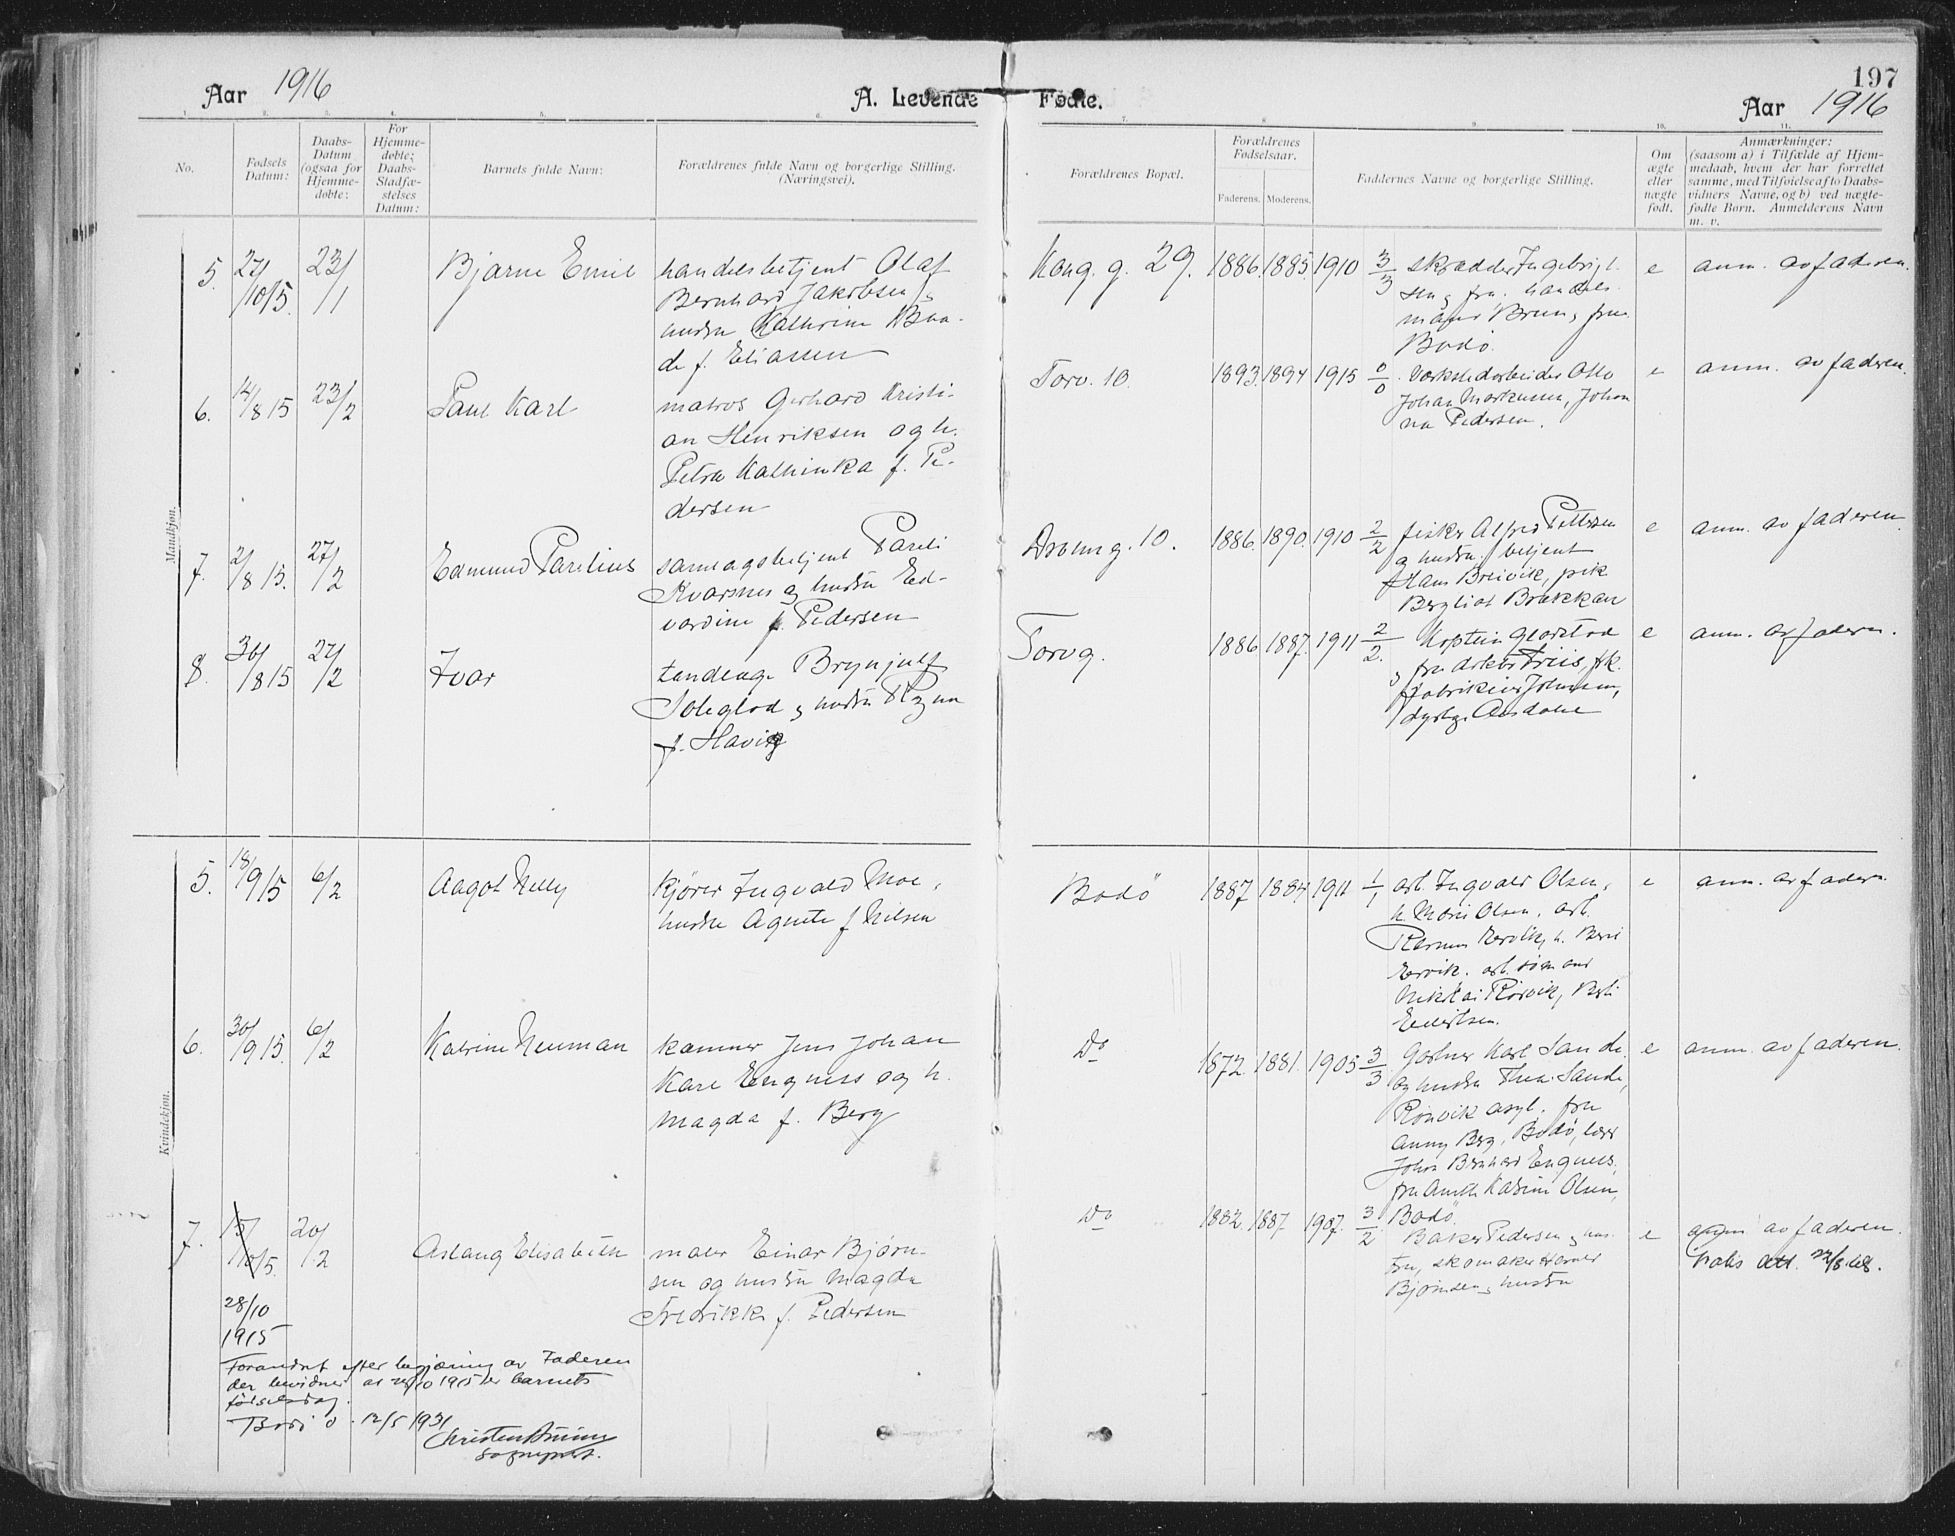 Aar 1916
A. Levende Fødte.
197
Aar 1916
1. 2. 3. 4. 5. 6. 7. 8. 9. 10. 11.
No.
Fødsels Datum:
Daabs-Datum (ogsaa for Hjemme-døbte:
For Hjemme-døbte; Daabs-Stadfæ-stelses Datum:
Barnets fulde Navn:
Forældrenes fulde Navn og borgerlige Stilling.
(Næringsvei).
Forældrenes Bopæl.
Forældrenes Fødselsaar.
Faderens. Moderens.
Faddernes Navne og borgerlige Stilling.
Om ægte eller uægte født.
Anmærkninger:
(saasom a) i Tilfælde af Hjem-
medaab, hvem der har forrettet
samme, med Tilføielse af to Daabs-
vidners Navne, og b) ved uægte-
fødte Børn. Anmelderens Navn
m. v.
Mandkjøn.
5. 27/10/5. 23/1 Bjarne Emil
handelsbetjent Olaf
Bernhard Jakobsen &
hustru Kathrine
f. Eliassen
Kong. g. 29. 1886. 1885. 1910 3/3
skrædder
Brun, fru
Bodø.
e anm. av faderen.
6. 14/8 15 23/2 Paul Karl
matros Gerhard Kristi-
an Henriksen og h.
Petra Kathinka f. Pe-
dersen
Torv. 10. 1893. 1894 1915 0/0
Verkstedarbeider Otto
Johan Markussen, Johan
na Pedersen.
e anm. av faderen.
7. 2/8 15. 27/2 Edmund Parelius
Pareli
Kvarsnes og hustru Ed-
vardine f. Pedersen
Dronng. 10. 1886. 1890. 1910 2/2
fisker Alfred Pettersen
og hustru, betjent
Hans Breivik, pik
Bergliot Brækkan
e anm. av faderen.
8. 30/8 15 27/2 Ivar
tandlæge Brynjulf
Soleglad og hustru Ragna
f. Havig
Torvg. 1886 1887. 1911 2/2.
Kaptein
fru Friis, frk.
Johnsen,
e anm. av faderen.
Kvindekjøn.
5. 18/9 15 6/2 Aagot Nelly
kjører Ingvald Moe,
hustru Agnete f. Nilsen
Bodø 1887 1884 1911 1/1
arb. Ingvald Olsen,
h. Marie Olsen. arb.
Rørvik,
e anm. av faderen.
6. 30/9 15. 6/2 Katrine Neuman
Jens Johan
Karl Engnes og h.
Magda f. Berg
Do 1872. 1881. 1905 3/3
Gartner Karl Sande
og hustru Thea Sande,
Rønvik asyl. fru
Anny Berg, Bodø, lærer
Johan Bernhard Engnes,
fru Katrine Olsen,
Bodø.
e anm. av faderen.
7. 15/10/5. 20/2 Aslaug Elisabeth
maler Einar Bjørn-
sen og hustru Magda
Fredrikke f. Pedersen
Do 1882. 1887. 1907. 3/2
Baker Pedersen & hus-
tru, skomaker
Bjørnsen & hustru
e anm. av faderen.
28/10
1915
Forandret efter begjæring av Faderen
der bevidner at 28/10 1915 er barnets
fødselsdag.
Bodø 12/5 1931
sogneprest.